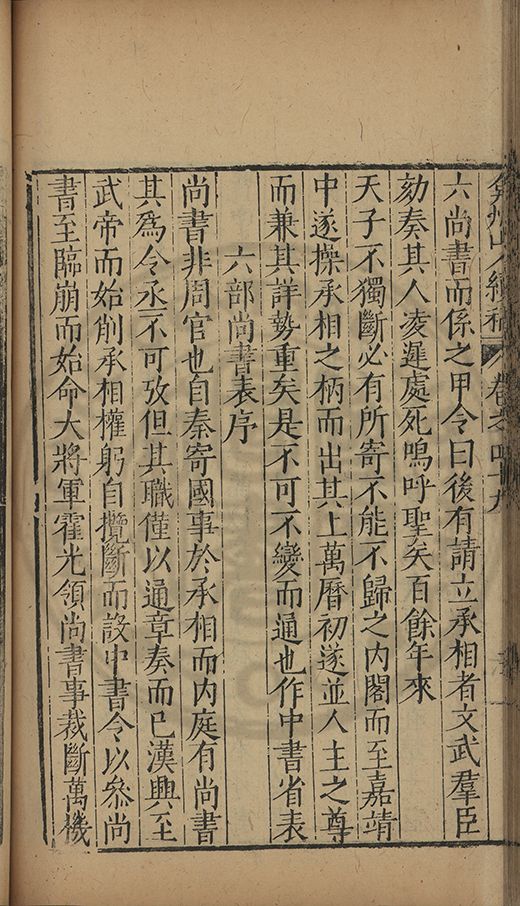 弇州山人續稿 卷之四十九
六尚書而係之甲令曰後有請立承相者文武羣臣
劾奏其人凌遲處死嗚呼聖矣百餘年來
天子不獨斷必有所寄不能不歸之內閣而至嘉靖
中遂操承相之柄而出其上萬曆初遂並人主之尊
而兼其詳勢重矣是不可不變而通也作中書省表
六部尚書表序
尚書非周官也自秦寄國事於承相而內庭有尚書
其爲令丞不可攷但其職僅以通章奏而已漢興至
武帝而始削承相權躬自攬斷而設中書令以叅尚
書至臨崩而始命大將軍霍光領尚書事裁斷萬機